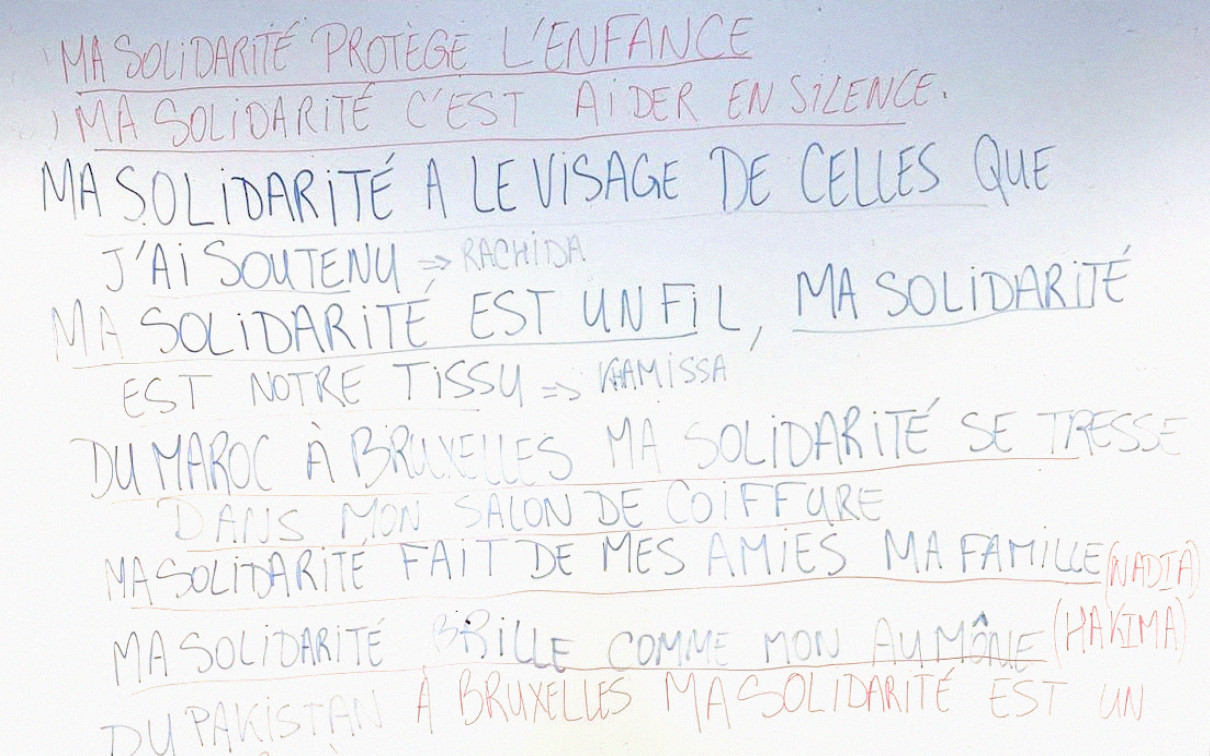 MA SOLIDARITÉ PROTÈGE L'ENFANCE
MA SOLIDARITÉ C'EST AIDER EN SILENCE.
MA SOLIDARITÉ A LE VISAGE DE CELLES QUE
J'AI SOUTENU => RACHIDA
MA SOLIDARITÉ EST UN FIL, MA SOLIDARITÉ
EST NOTRE TISSU => KHAMISSA
DU MAROC À BRUXELLES MA SOLIDARITÉ SE TRESSE
DANS MON SALON DE COIFFURE
MA SOLIDARITÉ FAIT DE MES AMIES MA FAMILLE (NADIA)
MA SOLIDARITÉ BRILLE COMME MON AUMÔNE (HAKIMA)
DU PAKISTAN À BRUXELLES MA SOLIDARITÉ EST UN